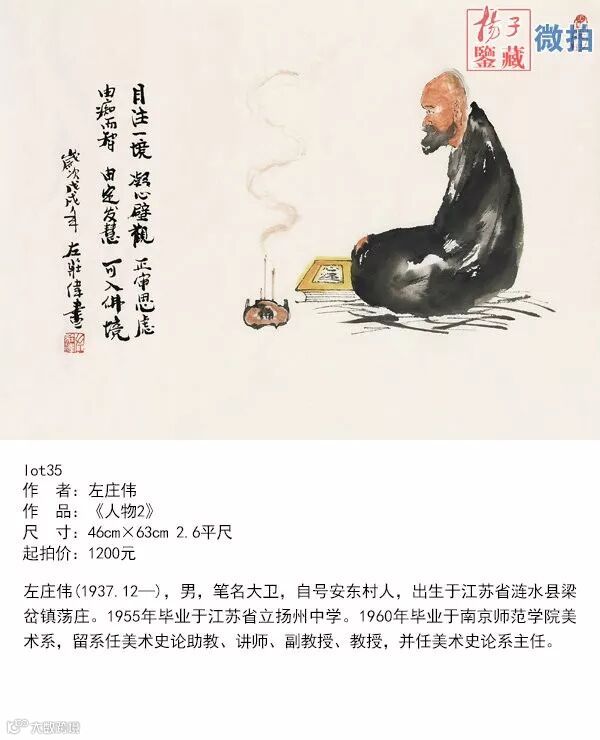 杨子
鉴藏
微拍
目注一境 凝心壁觀 正審思慮
由痴而智 由定发慧 可入佛境
歲次戊戌年 左莊偉畫
心道
lot35
作 者：左庄伟
作 品：《人物2》
尺 寸：46cm×63cm 2.6平尺
起拍价：1200元
左庄伟(1937.12—)，男，笔名大卫，自号安东村人，出生于江苏省涟水县梁
岔镇荡庄。1955年毕业于江苏省立扬州中学。1960年毕业于南京师范学院美
术系，留系任美术史论助教、讲师、副教授、教授，并任美术史论系主任。
大数跨境